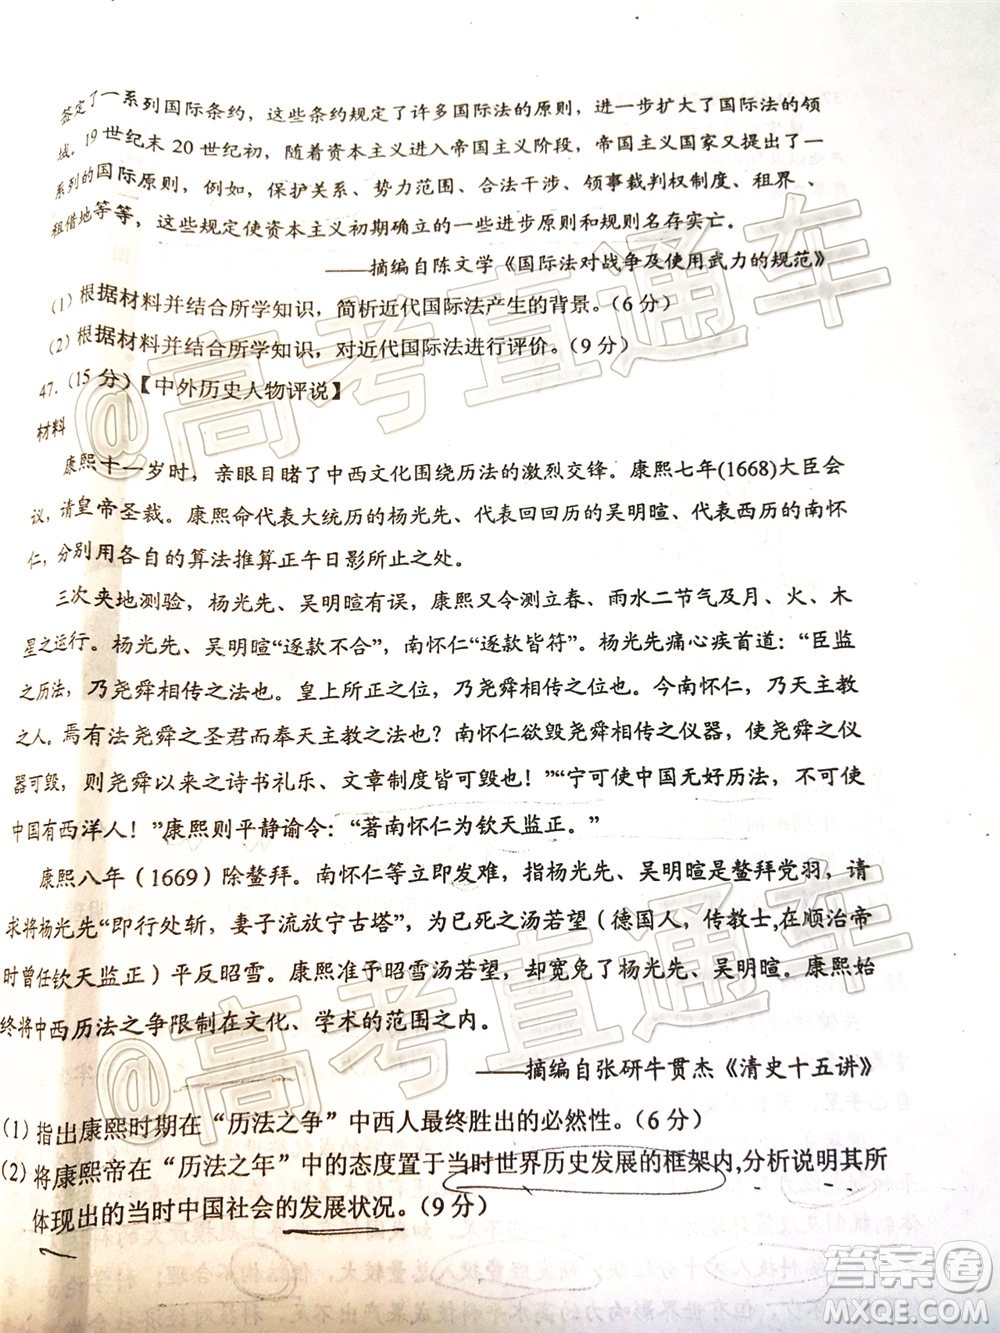 签定了一系列国际条约，这些条约规定了许多国际法的原则，进一步扩大了国际法的领
域。19世纪末20世纪初，随着资本主义进入帝国主义阶段，帝国主义国家又加进了一
系列的国际原则，例如，保护关系、势力范围、合法干涉、领事裁判权制度、租界、
租借地等等，这些规定使资本主义初期确立的一些进步原则和规则名存实亡。
——摘编自陈文学《国际法对战争及使用武力的规范》
(1) 根据材料并结合所学知识，简析近代国际法产生的背景。(6分)
(2) 根据材料并结合所学知识，对近代国际法进行评价。(9分)
47. (15分)【中外历史人物评说】
材料
康熙十一岁时，亲眼目睹了中西文化围绕历法的激烈交锋。康熙七年(1668)大臣会
议，请皇帝圣裁。康熙命代表大统历的杨光先、代表回回历的吴明暄、代表西历的南怀
仁，分别用各自的算法推算正午日影所止之处。
三次夹地测验，杨光先、吴明暄有误，康熙又令测立春、雨水二节气及月、火、木
星之运行。杨光先、吴明暄“逐款不合”，南怀仁“逐款皆符”。杨光先痛心疾首道：“臣监
之历法，乃尧舜相传之法也。皇上所正之位，乃尧舜相传之位也。今南怀仁，乃天主教
之人。焉有法尧舜之圣君而奉天主教之法也？南怀仁欲毁尧舜相传之仪器，使尧舜之仪
器可毁，则尧舜以来之诗书礼乐、文章制度皆可毁也！”“宁可使中国无好历法，不可使
中国有西洋人！”康熙则平静谕令：“著南怀仁为钦天监正。”
康熙八年（1669）除鳌拜。南怀仁等立即发难，指杨光先、吴明暄是鳌拜党羽，请
求将杨光先“即行处斩，妻子流放宁古塔”，为已死之汤若望（德国人，传教士,在顺治帝
时曾任钦天监正）平反昭雪。康熙准予昭雪汤若望，却宽免了杨光先、吴明暄。康熙始
终将中西历法之争限制在文化、学术的范围之内。
——摘编自张研牛贯杰《清史十五讲》
(1) 指出康熙时期在“历法之争”中西人最终胜出的必然性。(6分)
(2) 将康熙帝在“历法之年”中的态度置于当时世界历史发展的框架内,分析说明其所
体现出的当时中国社会的发展状况。(9分)
@高考直通车
@高考直通车
答案圈
MXQE.COM